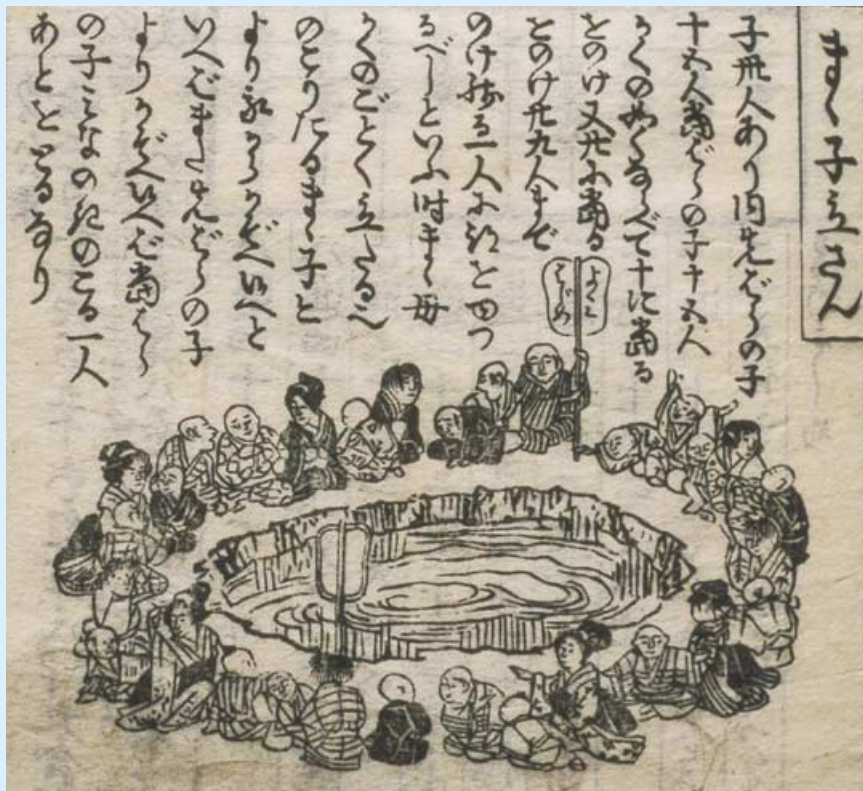 まゝ子立さん
子卅人あり内先ばらの子
十五人當ばらの子十五人
かくの如くならべて十に當る
をのけ又廿に當る
とのけ廿九人まで
のけ残る一人に跡をゆつ
るべしといふ時まゝ母
かくのごとく立たる
のこりたるまゝ子と
より我からかぞへ給へと
いへばまた先ばらの子
よりかぞへいへば當ばら
の子みなのきのこる一人
あとをとるなり
はじめ